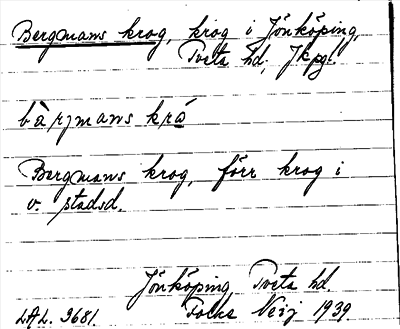 Bergmans krog, krog i Jönköping,
Tveta hd, Jkpg.
bàrjmans krá
Bergmans krog, förr krog i
v. stadsd.
Jönköping Tveta hd.
LAL. 3681. Folke Neij 1939.